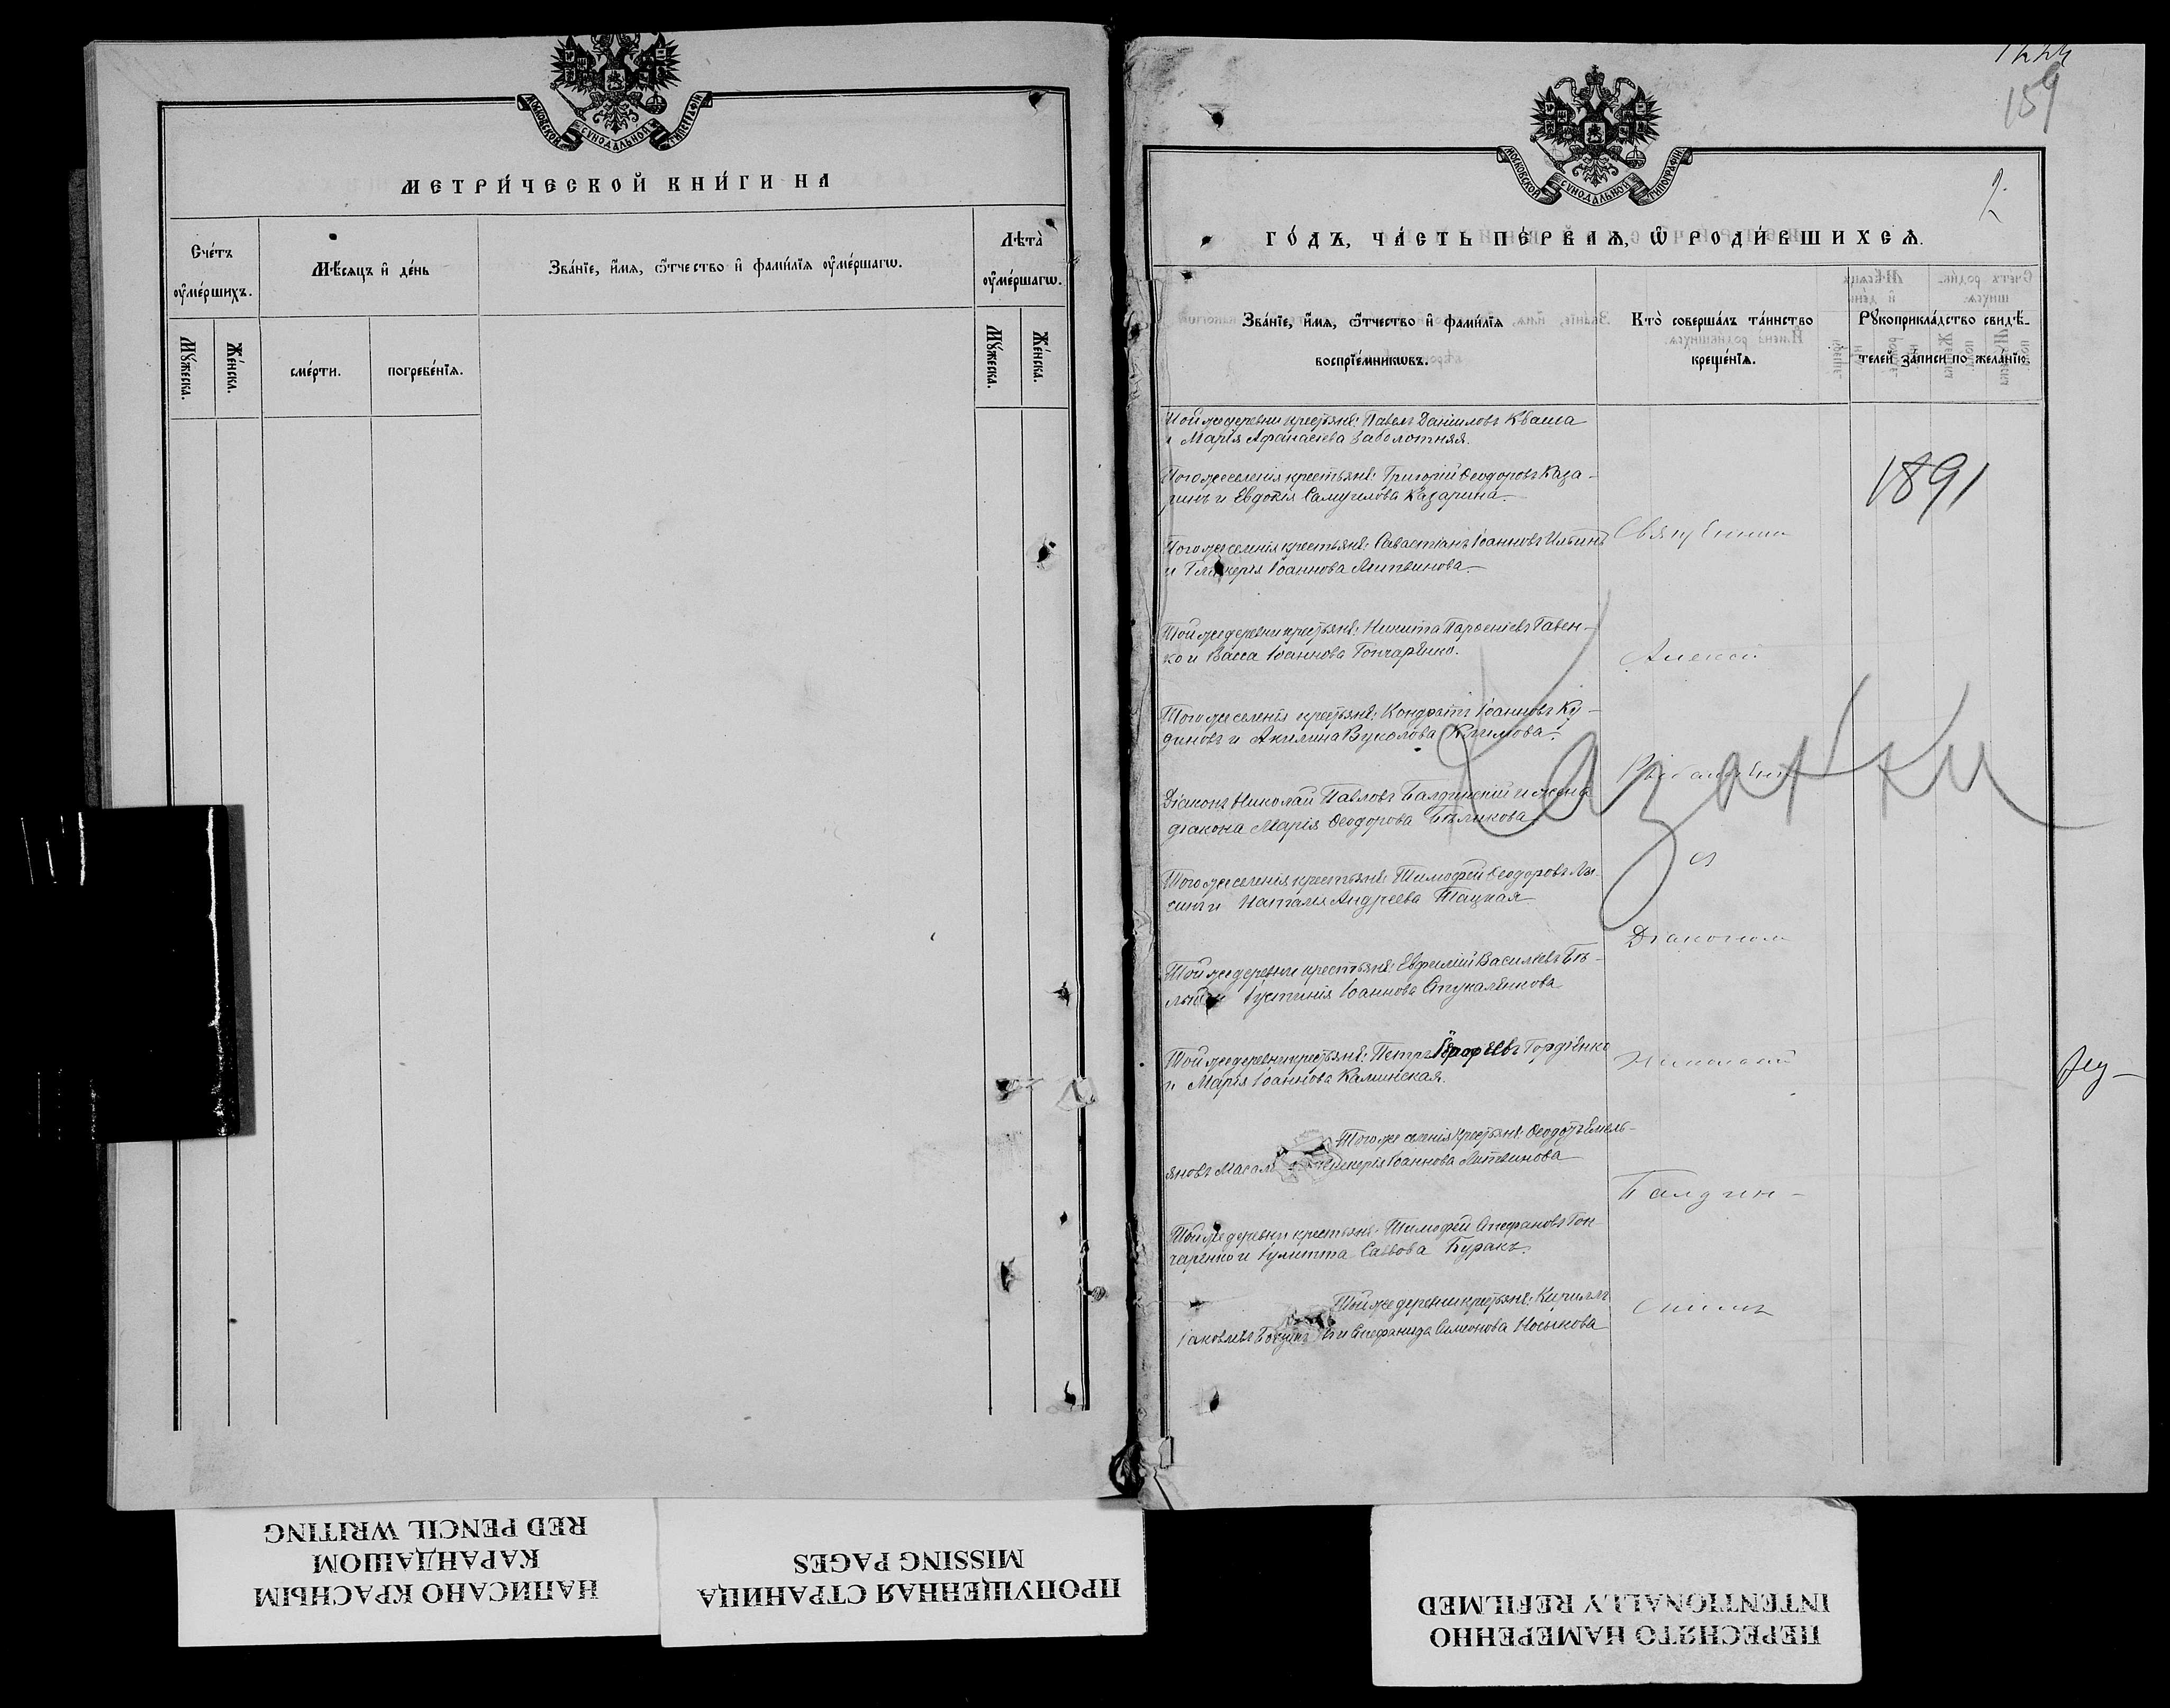 МОСКОВСКОЙ СѴНОДАЛЬНОЙ ТИПОГРАФІИ
МЕТРИ́ЧЕСКОЙ КНИ́ГИ НА
Сче́тъ
оу҆ме́ршихъ.
Мꙋ́жеска.
Же́нска.
Мѣ́сѧцъ и҆ де́нь
сме́рти.
погребе́нїѧ.
Зва́нїе, и҆́мѧ, ѻ҆́тчество и҆ фамі́лїѧ оу҆ме́ршагѡ.
Лѣта̀
оу҆ме́ршагѡ.
Мꙋ́жеска.
Же́нска.
159
2.
МОСКОВСКОЙ СѴНОДАЛЬНОЙ ТИПОГРАФІИ
ГО́ДЪ, ЧА́СТЬ ПЕ́РВАѦ, Ѡ҆ РОДИ́ВШИХСѦ.
Зва́нїе, и҆́мѧ, ѻ҆́тчество и҆ фамі́лїѧ
воспрїе́мникѡвъ.
Кто̀ соверша́лъ та́инство
креще́нїѧ.
Рꙋкоприкла́дство свидѣ́-
телей за́писи по жела́нїю
Той же деревни крестьяне: Павелъ Даніиловъ Кваша
и Марія Афанасіева Заболотняя.
Того же селенія крестьяне: Григорій Ѳеодоровъ Каза-
ринъ и Евдокія Самуилова Казарина.
1891
Того же селенія крестьяне: Савастіанъ Іоанновъ Ильинъ
и Гликерія Іоаннова Литвинова.
Священник
Той же деревни крестьяне: Никита Парѳеніевъ Гавен-
ко и Васса Іоаннова Гончаренко.
Алексій
Того же селенія крестьяне: Кондратъ Іоанновъ Ку-
диновъ и Акилина Вуколова
Казакки
Діаконъ Николай Павловъ Балдинскій и жена
діакона Марія Ѳеодорова Бѣликова
Того же селенія крестьяне: Тимофей Ѳеодоровъ Лы-
синъ и Наталія Андреева Тацкая
съ
Діакономъ
Той же деревни крестьяне: Евфимій Васильевъ Бѣ-
лый и Іустинія Іоаннова Стукаленкова
Той же деревни крестьяне: Петръ Гордіенко
и Марія Іоаннова Калинская.
Николай
Того же селенія крестьяне: Ѳеодотъ Емель-
яновъ Іоаннова Литвинова
Балдин-
Той же деревни крестьяне: Тимофей Стефановъ Гон-
чаренко и Іулитта Саввова Буракъ.
Той же деревни крестьяне: Кириллъ
Іаковлевъ и Стефанида Симеонова Носикова
скимъ
НАПИСАНО КРАСНЫМ
КАРАНДАШОМ
RED PENCIL WRITING
ПРОПУЩЕННАЯ СТРАНИЦА
MISSING PAGES
ПЕРЕСНЯТО НАМЕРЕННО
INTENTIONALLY REFILMED